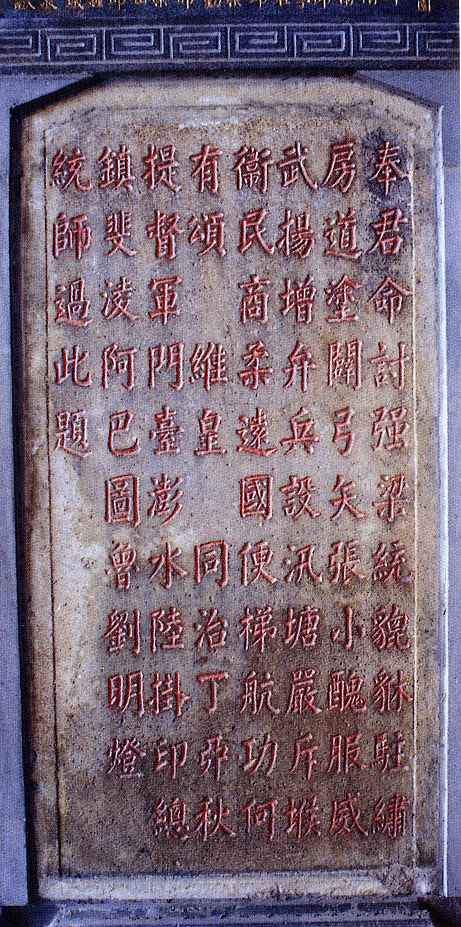 奉君命討强梁統貔貅駐繡
房道塗闢弓矢張小醜服威
武揚增弁兵設汛塘嚴斥堠
衞民商柔遠國便梯航功何
有頌維皇同治丁卯秋
提督軍門臺澎水陸掛印總
鎮斐凌阿巴圖魯劉明燈
統師過此題